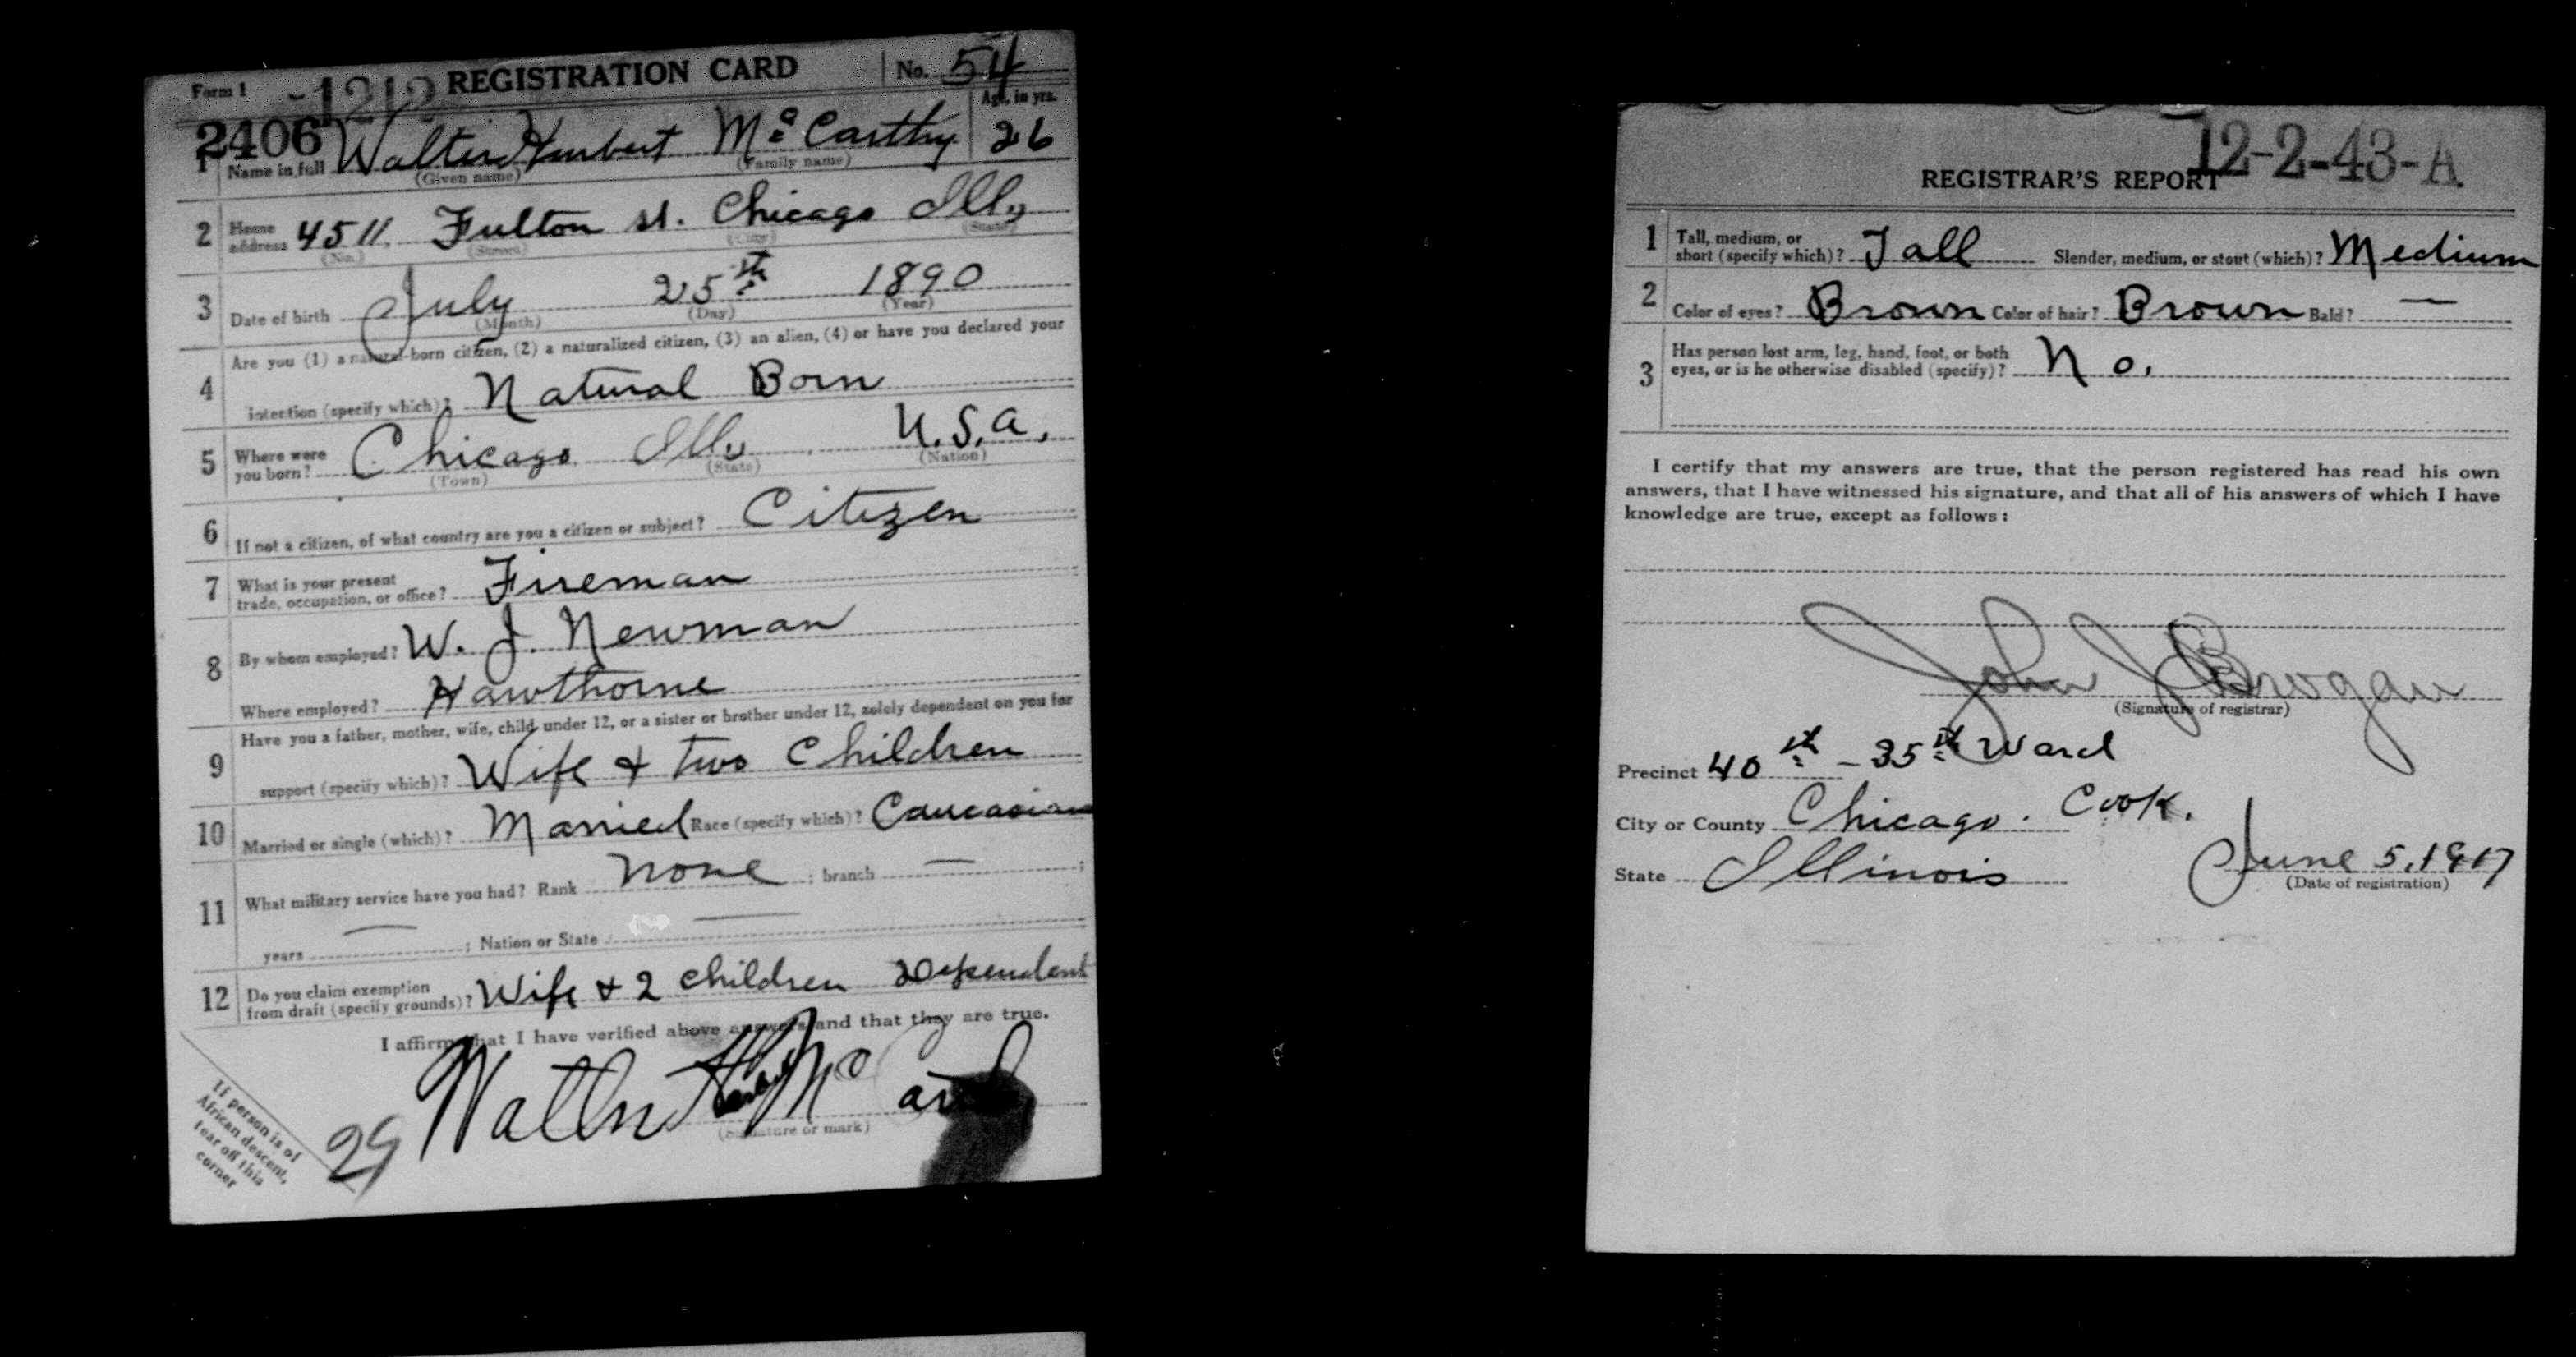 Form 1 -1212 REGISTRATION CARD No. 54
2406 Age, in yrs.
1 Name in full Walter Herbert McCarthy 26
(Given name) (Family name)
2 Home address 4511 Fulton st. Chicago Ills
(No.) (Street) (City) (State)
3 Date of birth July 25th 1890
(Month) (Day) (Year)
Are you (1) a natural-born citizen, (2) a naturalized citizen, (3) an alien, (4) or have you declared your
4 intention (specify which)? Natural Born
5 Where were you born? Chicago Ills U.S.A.
(Town) (State) (Nation)
6 If not a citizen, of what country are you a citizen or subject? Citizen
7 What is your present
trade, occupation, or office? Fireman
8 By whom employed? W. J. Newman
Where employed? Hawthorne
9 Have you a father, mother, wife, child under 12, or a sister or brother under 12, solely dependent on you for
support (specify which)? Wife & two Children
10 Married or single (which)? Married Race (specify which)? Caucasian
11 What military service have you had? Rank None ; branch — ;
years — ; Nation or State —
12 Do you claim exemption
from draft (specify grounds)? Wife & 2 children Dependent
I affirm that I have verified above answers and that they are true.
Walter Mc
(Signature or mark)
If person is of
African descent,
tear off this
corner
29
12-2-43-A
REGISTRAR'S REPORT
1 Tall, medium, or
short (specify which)? Tall Slender, medium, or stout (which)? Medium
2 Color of eyes? Brown Color of hair? Brown Bald? —
3 Has person lost arm, leg, hand, foot, or both
eyes, or is he otherwise disabled (specify)? No.
I certify that my answers are true, that the person registered has read his own
answers, that I have witnessed his signature, and that all of his answers of which I have
knowledge are true, except as follows:
John J Brogan
(Signature of registrar)
Precinct 40th - 35th Ward
City or County Chicago. Cook.
State Illinois June 5, 1917
(Date of registration)